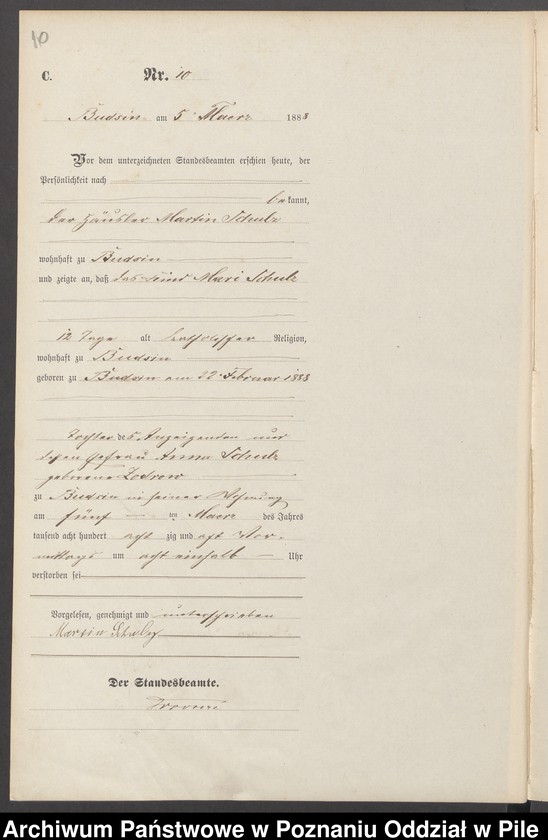 10
C. Nr. 10
Budsin am 5 Maerz 1888
Vor dem unterzeichneten Standesbeamten erschien heute, der
Persönlichkeit nach
bekannt,
der Häusler Martin Schulz
wohnhaft zu Budsin
und zeigte an, daß das Kind Mari Schulz
12 Tage alt katholischer Religion,
wohnhaft zu Budsin
geboren zu Budsin am 22 Februar 1888
Tochter des Anzeigenden und
dessen Ehefrau Anna Schulz
geborene
zu Budsin in seiner Wohnung
am fünf ten Maerz des Jahres
tausend acht hundert acht zig und acht Vor-
mittags um acht einhalb Uhr
verstorben sei
Vorgelesen, genehmigt und unterschrieben
Martin
Der Standesbeamte.
Archiwum Państwowe w Poznaniu Oddział w Pile